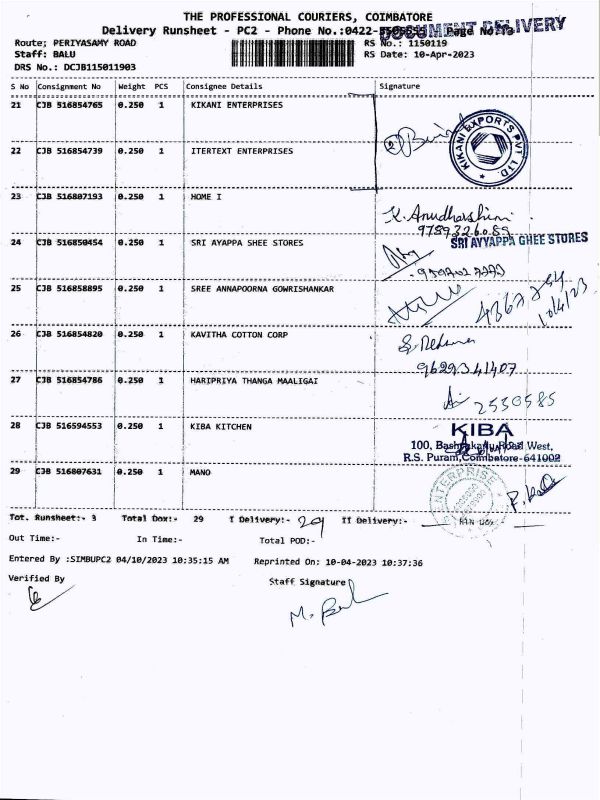 THE PROFESSIONAL COURIERS, COIMBATORE
Delivery Runsheet - PC2 - Phone No.:0422- Page No:3
DOCUMENT DELIVERY
Route; PERIYASAMY ROAD RS No.: 1150119
Staff: BALU RS Date: 10-Apr-2023
DRS No.: DCJB115011903
S No Consignment No Weight PCS Consignee Details Signature
21 CJB 516854765 0.250 1 KIKANI ENTERPRISES
KIKANI EXPORTS PVT LTD.
22 CJB 516854739 0.250 1 ITERTEXT ENTERPRISES
23 CJB 516807193 0.250 1 HOME I
K. Anudharshini
9789326089
24 CJB 516850454 0.250 1 SRI AYAPPA SHEE STORES
SRI AYYAPPA GHEE STORES
25 CJB 516858895 0.250 1 SREE ANNAPOORNA GOWRISHANKAR
10/4/23
26 CJB 516854820 0.250 1 KAVITHA COTTON CORP
9629341407
27 CJB 516854786 0.250 1 HARIPRIYA THANGA MAALIGAI
2530585
28 CJB 516594553 0.250 1 KIBA KITCHEN
KIBA
100, Bashyakarlu Road West,
R.S. Puram, Coimbatore-641002
29 CJB 516807631 0.250 1 MANO
ENTERPRISE
Tot. Runsheet:- 3 Total Dox:- 29 I Delivery:- 29 II Delivery:-
Out Time:- In Time:- Total POD:-
Entered By :SIMBUPC2 04/10/2023 10:35:15 AM Reprinted On: 10-04-2023 10:37:36
Verified By Staff Signature